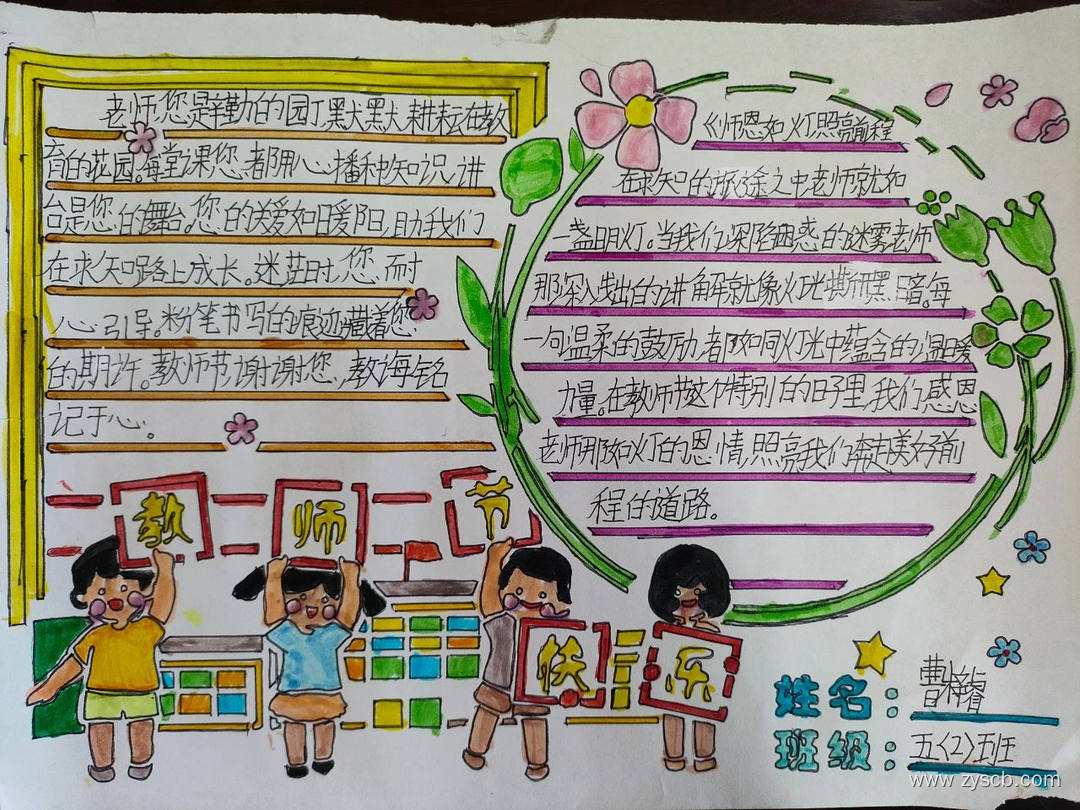 老师,您是辛勤的园丁,默默耕耘在教
育的花园。每堂课您都用心播种知识,讲
台是您的舞台。您的关爱如暖阳,助我们
在求知路上成长。迷茫时,您耐
心引导。粉笔书写的痕迹,藏着您
的期许。教师节,谢谢您,教诲铭
记于心。
《师恩如灯照亮前程
在求知的旅途之中老师就如
一盏明灯。当我们深陷困惑的迷雾老师
那深入浅出的讲解就像灯光撕开黑暗。每
一句温柔的鼓励,都如同灯光中蕴含的温暖
力量。在教师节这个特别的日子里,我们感恩
老师那如灯的恩情,照亮我们奔赴美好前
程的道路。
教师节
快乐
姓名:曹梓睿
班级:五〈2〉五班
www.zyscb.com